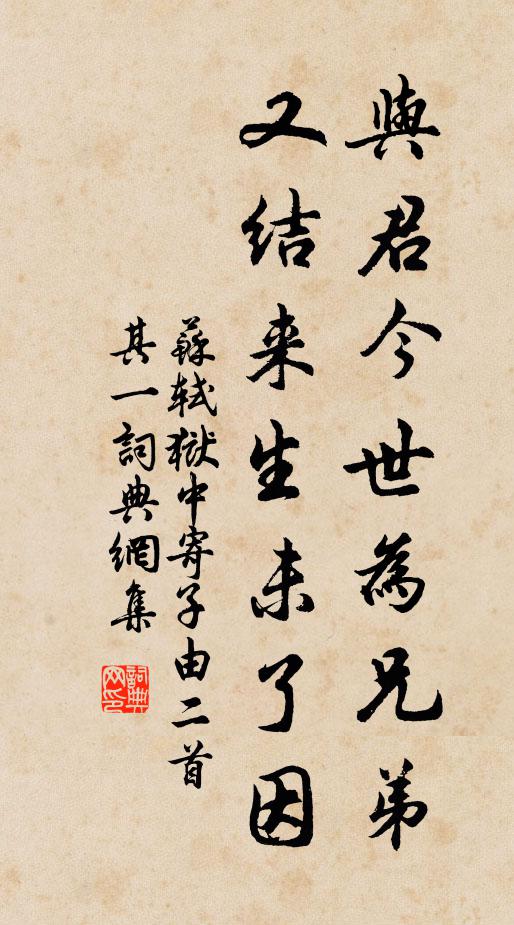 與君今世為兄弟
又結来生未了因
蘇軾獄中寄子由二首
其一詞典網集
詞典
网印